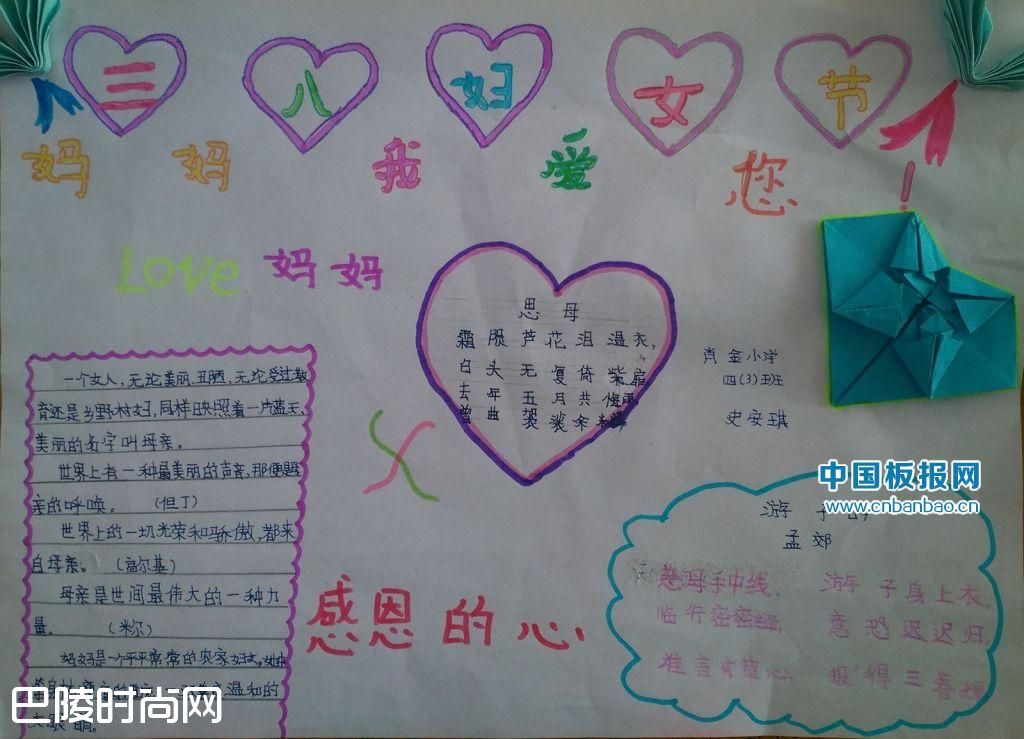 三八妇女节
妈妈我爱您!
Love 妈妈
思母
霜殒芦花泪湿衣,
白头无复倚柴扉。
去年五月共梅雨
曾曲袈裟余米
肖金小学
四(3)班
史安琪
一个女人,无论美丽、丑陋,无论受过教
育还是乡野村妇,同样日照着一片蓝天,
美丽的名字叫母亲。
世界上有一种最美丽的声音,那便是
亲的呼唤。(但丁)
世界上的一切光荣和骄傲,都来
自母亲。(高尔基)
母亲是世间最伟大的一种力
量。(米尔)
妈妈是一个平平常常的农家妇女。
温和的
大眼睛。
感恩的心
中国板报网
www.cnbanbao.cn
游子
孟郊
慈母手中线, 游子身上衣。
临行密密缝, 意恐迟迟归。
谁言寸草心, 报得三春晖
巴陵时尚网